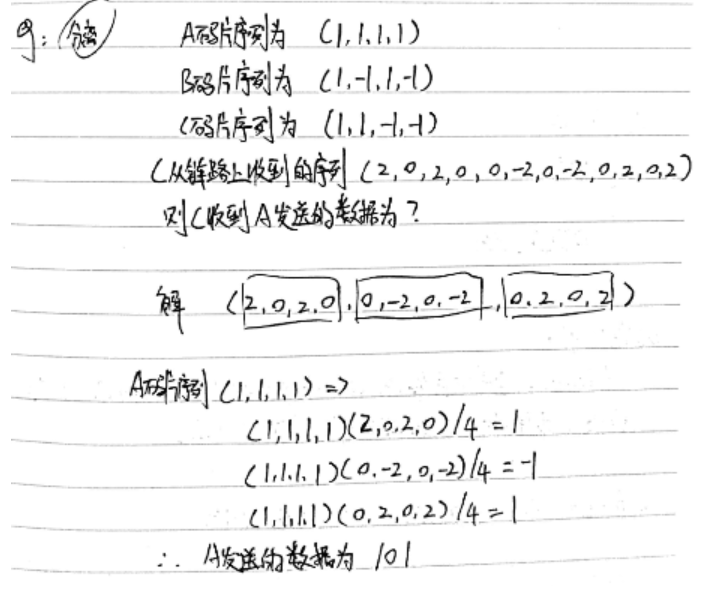 例: 分离 A码片序列为 (1,1,1,1)
B码片序列为 (1,-1,1,-1)
C码片序列为 (1,1,-1,-1)
C从链路上收到的序列 (2,0,2,0,0,-2,0,-2,0,2,0,2)
则C收到A发送的数据为?
解 (2,0,2,0,0,-2,0,-2,0,2,0,2)
A码片序列(1,1,1,1) =>
(1,1,1,1)(2,0,2,0)/4=1
(1,1,1,1)(0,-2,0,-2)/4=-1
(1,1,1,1)(0,2,0,2)/4=1
∴ A发送的数据为 101